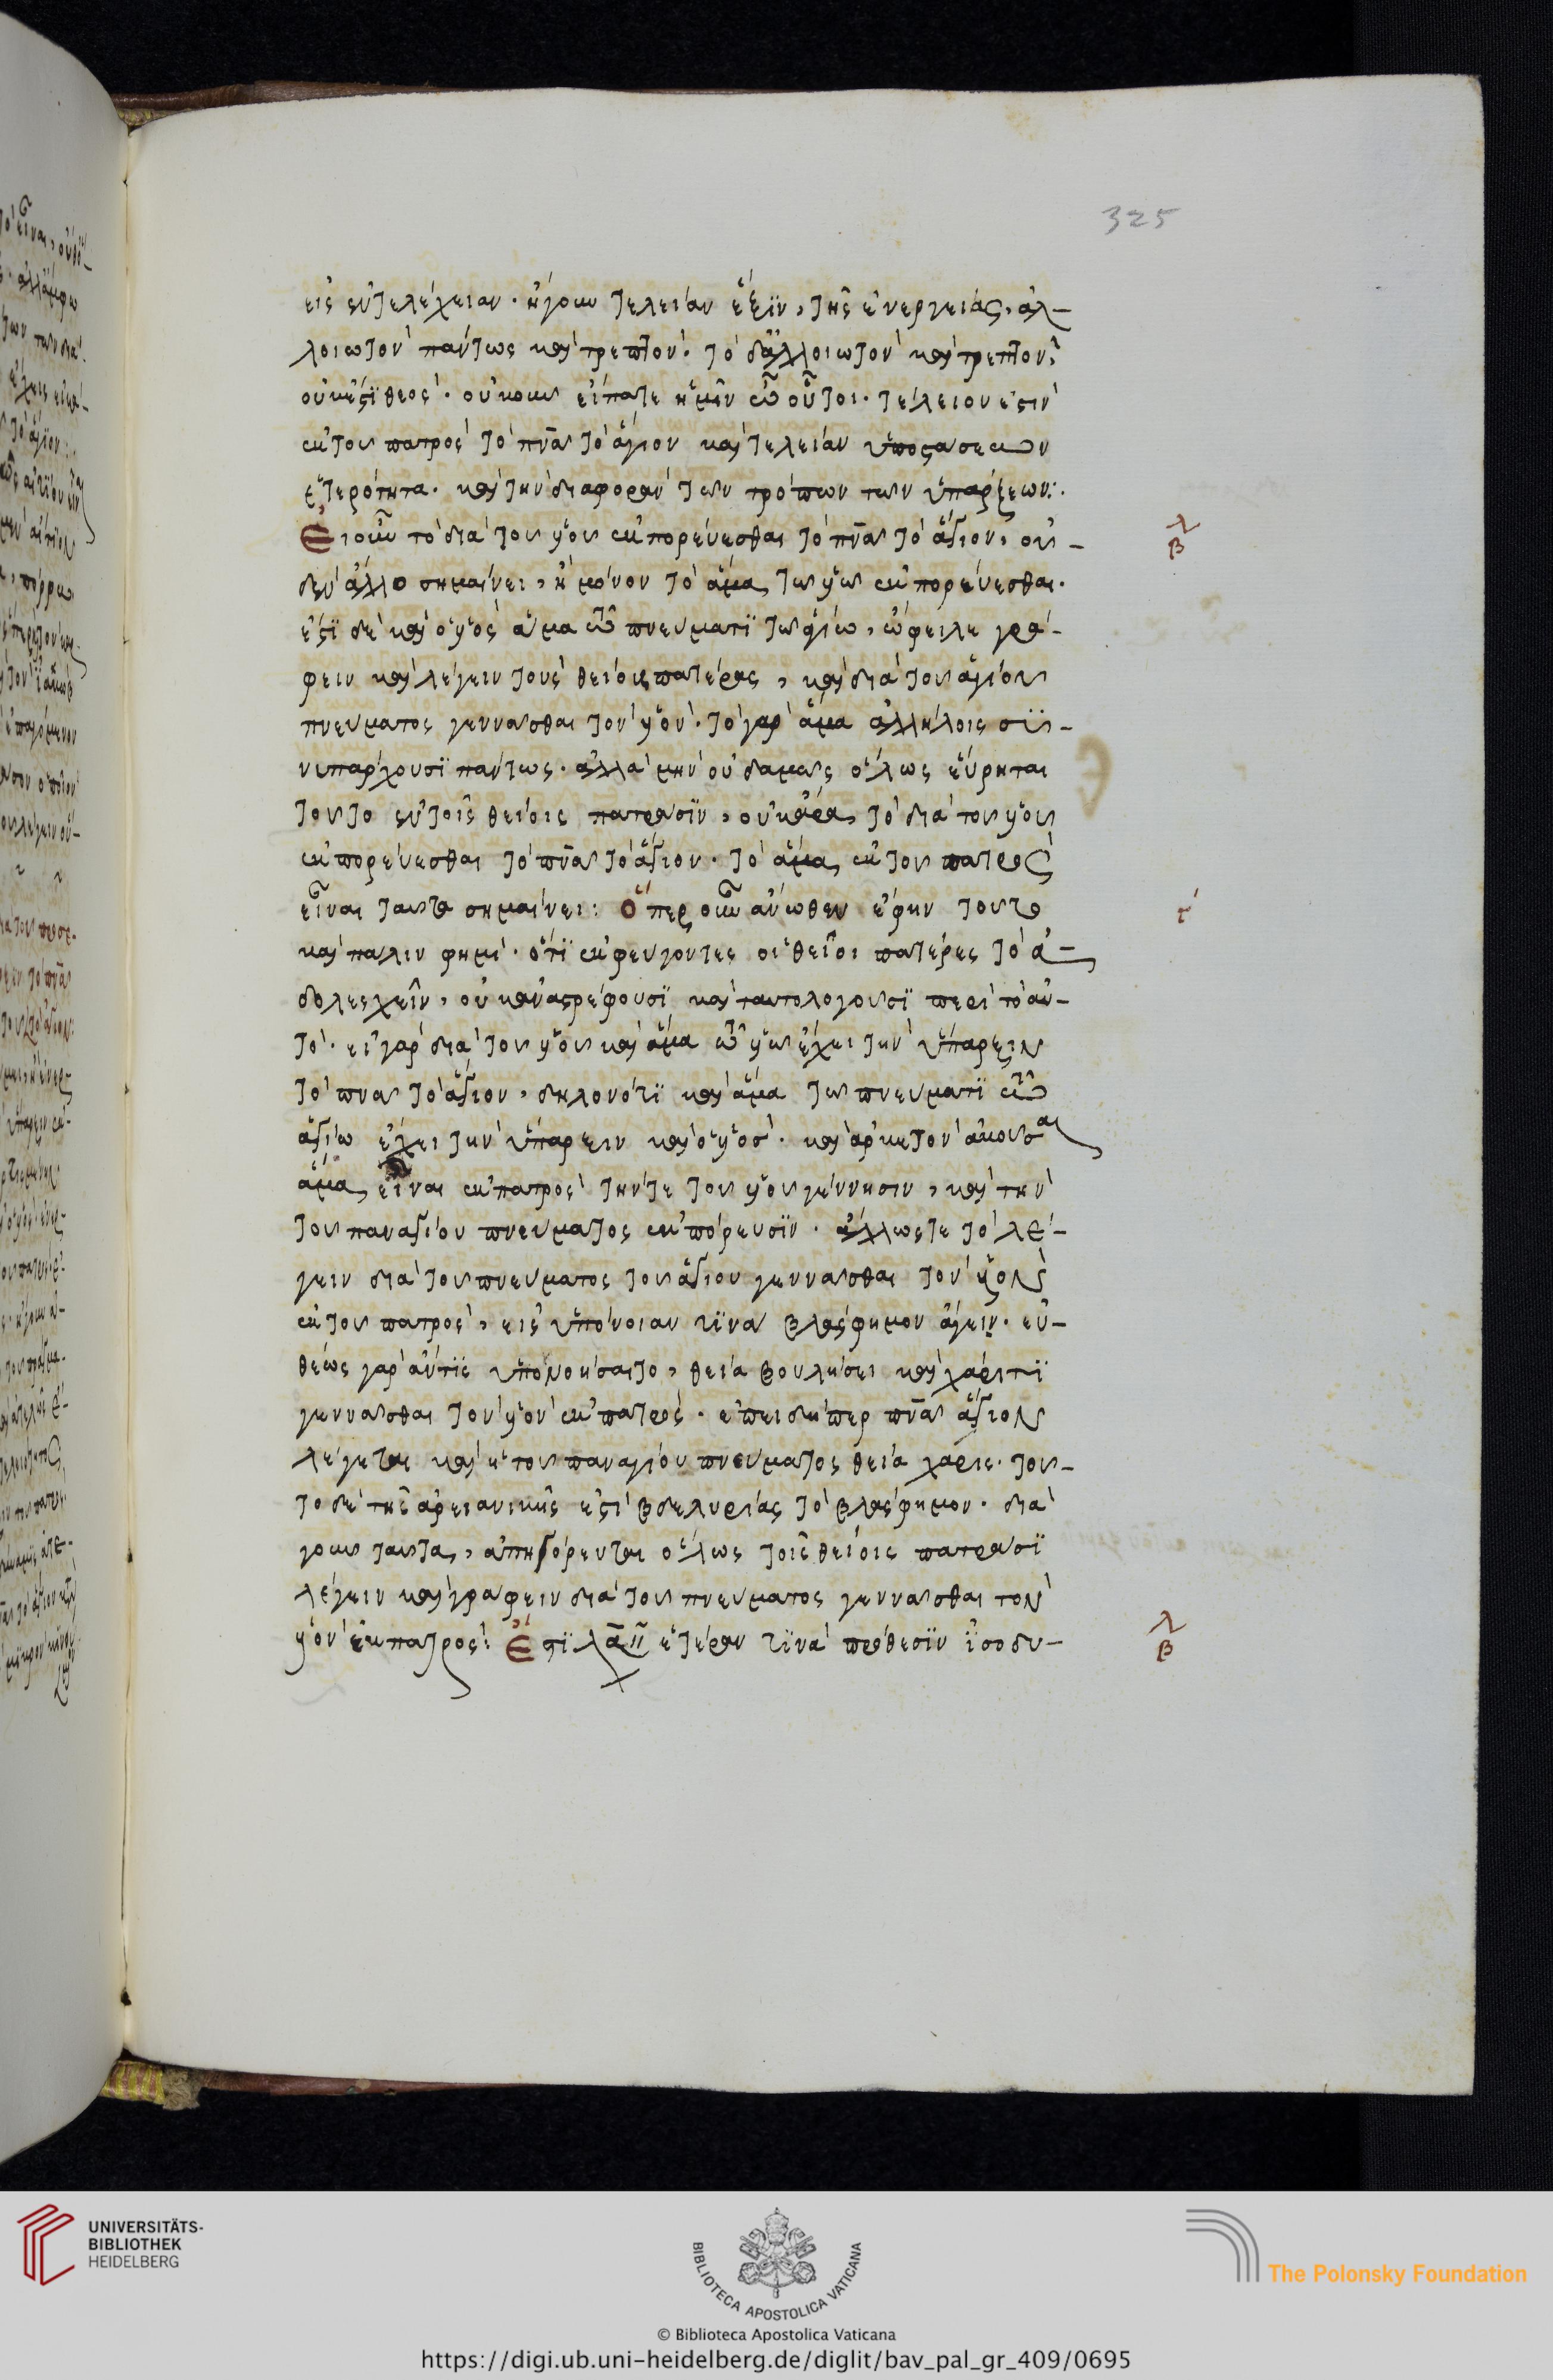 325
εἰς ἐντελέχειαν· ἤγουν τελείαν ἕξϊν, τῆς ἐνεργείας, ἀλ-
λοιωτὸν πάντως καὶ τρεπτόν· τὸ δ' ἀλλοιωτὸν καὶ τρεπτὸν,
οὐκ ἔστϊ θεός· οὐκοῦν εἴπατε ἡμῖν ὦ οὗτοι· τέλειον ἐστὶν
ἐκ τοῦ πατρὸς τὸ πνᾶ τὸ ἅγιον καὶ τελείαν ὑποστάσεων
ἑτερότητα· καὶ τὴν διαφορὰν τῶν τρόπων τῶν ὑπάρξεων:
Εἰ οὖν τὸ διὰ τοῦ υἱοῦ ἐκπορεύεσθαι τὸ πνᾶ τὸ ἅγιον, οὐ-
δὲν ἄλλο σημαίνει, ἢ μόνον τὸ ἅμα τῶ υἱῶ ἐκπορεύεσθαι·
ἔστϊ δὲ καὶ ὁ υἱὸς ἅμα τῶ πνεύματϊ τῶ ἁγίω, ὤφειλε γρά-
φειν καὶ λέγειν τοὺς θείους πατέρας, καὶ διὰ τοῦ ἁγίου
πνεύματος γεννᾶσθαι τὸν υἱόν· τὸ γὰρ ἅμα ἀλλήλοις συ-
νυπάρχουσϊ πάντως· ἀλλὰ μὴν οὐδαμῶς ὅλως εὕρηται
τοῦτο ἐν τοῖς θείοις πατράσϊν, οὐκ ἄρα τὸ διὰ τοῦ υἱοῦ
ἐκπορεύεσθαι τὸ πνᾶ τὸ ἅγιον· τὸ ἅμα ἐκ τοῦ πατρὸς
εἶναι ταῦτα σημαίνει: Ὅπερ οὖν ἄνωθεν ἔφην τοῦτο
καὶ πάλιν φημὶ· ὅτϊ ἐκφεύγοντες οἱ θεῖοι πατέρες τὸ ἀ-
δολεσχεῖν, οὐκ ἀναστρέφουσϊ καὶ ταυτολογοῦσϊ περὶ τὸ αὐ-
τό· εἰ γὰρ διὰ τοῦ υἱοῦ καὶ ἅμα τῶ υἱῶ ἔχει τὴν ὕπαρξιν
τὸ πνᾶ τὸ ἅγιον, δηλονότϊ καὶ ἅμα τῶ πνεύματϊ τῶ
ἁγίω ἔχει τὴν ὕπαρξιν καὶ ὁ υἱὸς· καὶ ἀρκετὸν ἀκοῦσαι
ἅμα εἶναι ἐκ πατρὸς τήν τε τοῦ υἱοῦ γέννησιν, καὶ τὴν
τοῦ παναγίου πνεύματος ἐκπόρευσϊν· ἄλλως τε τὸ λέ-
γειν διὰ τοῦ πνεύματος τοῦ ἁγίου γεννᾶσθαι τὸν υἱὸν
ἐκ τοῦ πατρὸς, εἰς ὑπόνοιαν τϊνὰ βλάσφημον ἄγειν· εὐ-
θέως γὰρ ἄν τϊς ὑπονοήσαιτο, θεία βουλήσει καὶ χάριτϊ
γεννᾶσθαι τὸν υἱὸν ἐκ πατρὸς· ἐπειδήπερ πνᾶ ἅγιον
λέγεται καὶ ἡ τοῦ παναγίου πνεύματος θεία χάρις· τοῦ-
το δὲ τῆς ἀρειανικῆς ἐστὶ βδελυρίας τὸ βλάσφημον· διὰ
γοῦν ταῦτα, ἀπηγόρευται ὅλως τοῖς θείοις πατράσϊ
λέγειν καὶ γράφειν διὰ τοῦ πνεύματος γεννᾶσθαι τὸν
υἱὸν ἐκ πατρός: Ἔστϊ ἑτέραν τϊνὰ πρόθεσϊν ἰσοδυ-
UNIVERSITÄTS-
BIBLIOTHEK
HEIDELBERG
BIBLIOTECA APOSTOLICA VATICANA
The Polonsky Foundation
© Biblioteca Apostolica Vaticana
https://digi.ub.uni-heidelberg.de/diglit/bav_pal_gr_409/0695